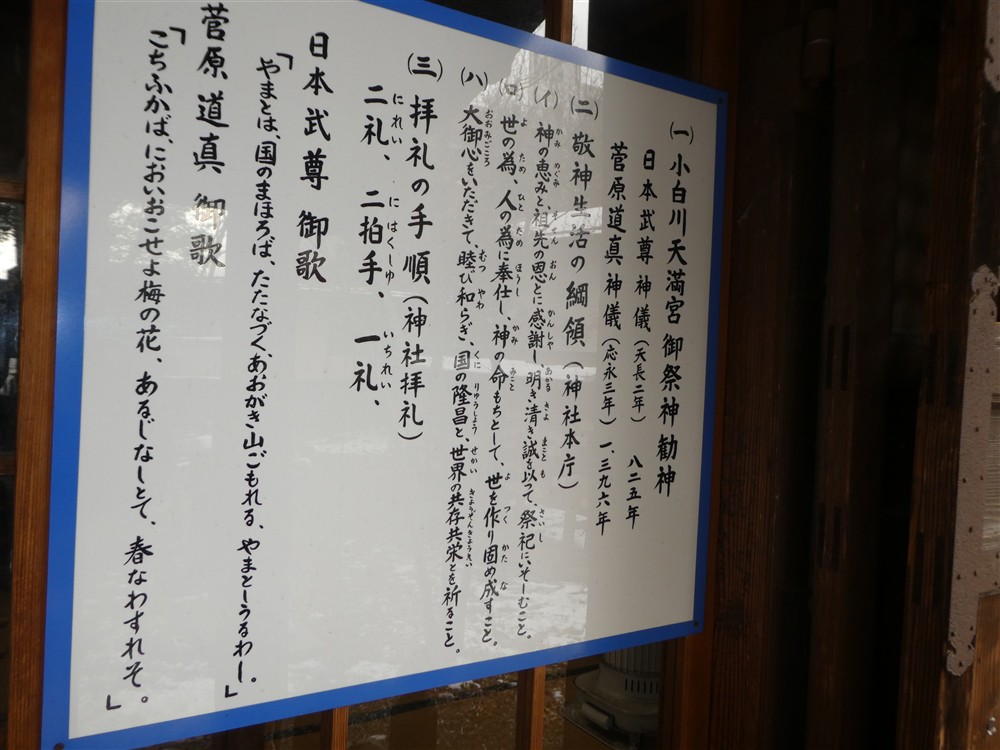 (一) 小白川天満宮御祭神勧神
日本武尊 神儀(天長二年) 八二五年
菅原道真 神儀(応永三年) 一、三九六年
(二) 敬神生活の綱領(神社本庁)
(イ) 神の恵みと、祖先の恩とに感謝し、明き清き誠を以つて、祭祀にいそしむこと。
(ロ) 世の為、人の為に奉仕し、神の命もちとして、世を作り固め成すこと。
(ハ) 大御心をいただきて、睦び和らぎ、国の隆昌と、世界の共存共栄とを祈ること。
(三) 拝礼の手順(神社拝礼)
二礼、二拍手、一礼、
日本武尊 御歌
「やまとは、国のまほろば、たたなづく、あおがき山ごもれる、やまとしうるわし。」
菅原道真 御歌
「こちふかば、においおこせよ梅の花、あるじなしとて、春なわすれそ。」